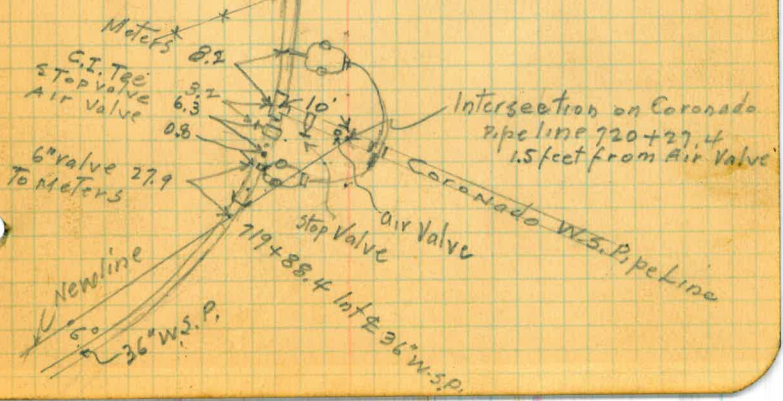 Meters 8.2
C.I. Tee
& Stop valve 3.2
Air Valve 6.3
0.8
10'
6" valve 27.9
To Meters
Intersection on Coronado
Pipe line 720+27.4
1.5 feet from Air Valve
Coronado W.S. Pipe Line
air Valve
Stop Valve
719+88.4 Int ℄ 36" W.S.P.
New line
6°
36" W.S.P.